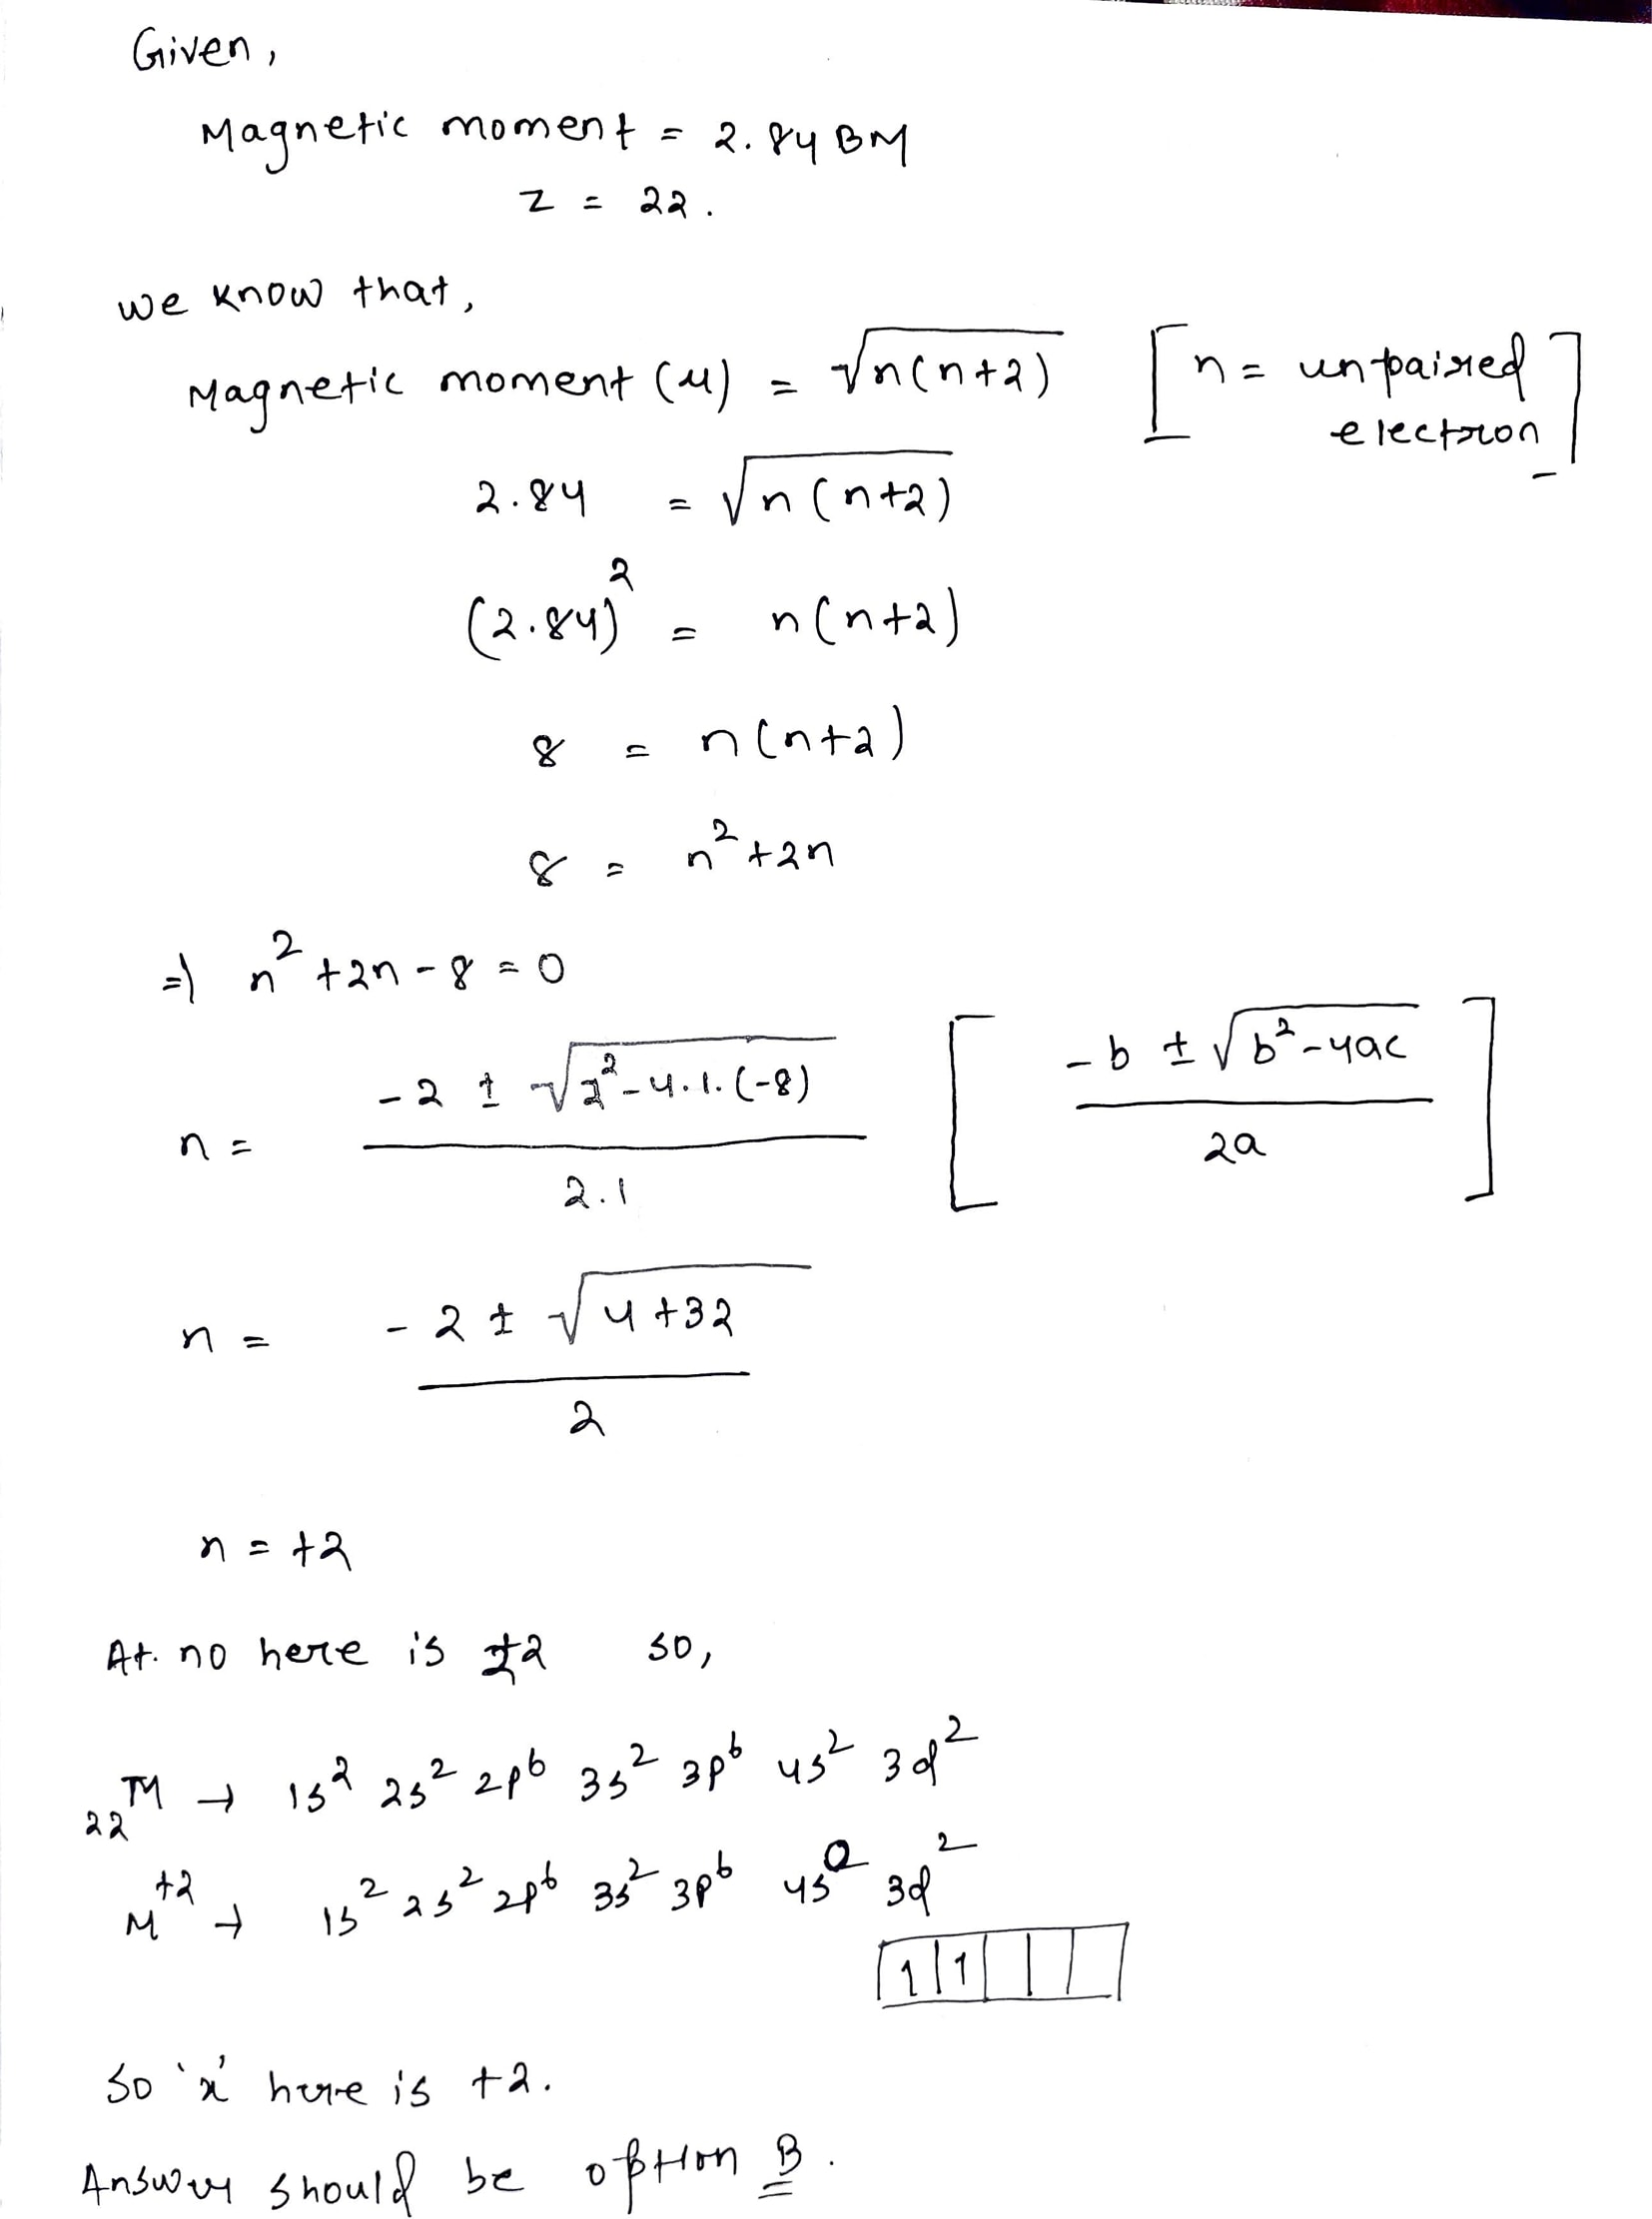 Given,
Magnetic moment = 2.84 BM
Z = 22.
we know that,
Magnetic moment (μ) = √n(n+2) [n = unpaired electron]
2.84 = √n(n+2)
(2.84)² = n(n+2)
8 = n(n+2)
8 = n²+2n
⇒ n²+2n-8=0
n = (-2 ± √2²-4.1.(-8)) / 2.1 [(-b ± √b²-4ac) / 2a]
n = (-2 ± √4+32) / 2
n = +2
At. no here is 22 so,
₂₂M → 1s² 2s² 2p⁶ 3s² 3p⁶ 4s² 3d²
M⁺² → 1s² 2s² 2p⁶ 3s² 3p⁶ 4s⁰ 3d²
1 1
So 'x' here is +2.
Answer should be option B.